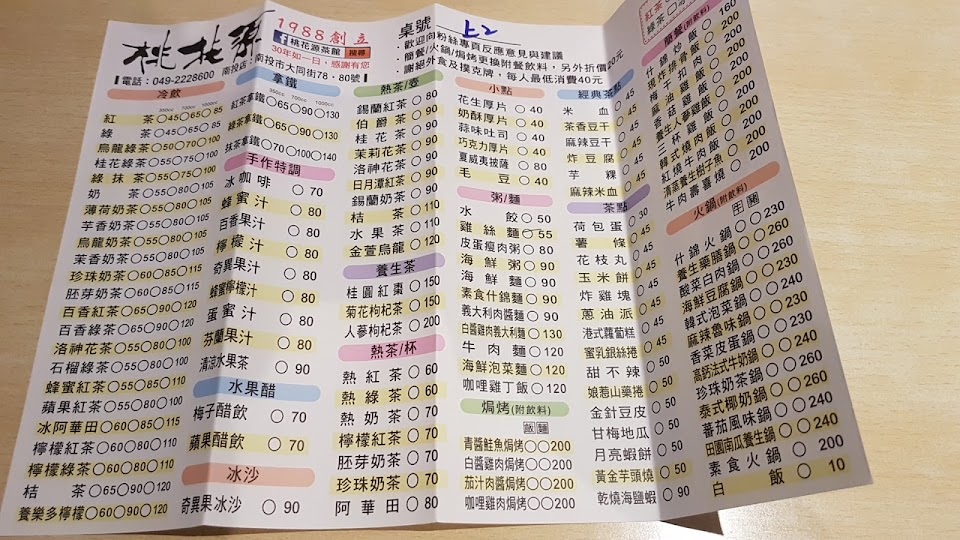 桃花源
1988創立
桃花源茶館 搜尋
30年如一日,感謝有您
電話:049-2228600 南投店:南投市大同街78、80號
桌號 上2
·歡迎向粉絲專頁反應意見與建議
·簡餐/火鍋/焗烤更換附餐飲料,另外折價20元
·謝絕外食及撲克牌,每人最低消費40元
冷飲
350cc 700cc 1000cc
紅茶○45○65○85
綠茶○45○65○85
烏龍綠茶○50○70○100
桂花綠茶○55○75○100
綠抹茶○55○75○100
奶茶○55○80○105
薄荷奶茶○55○80○105
芋香奶茶○55○80○105
烏龍奶茶○55○80○105
茉香奶茶○55○80○105
珍珠奶茶○60○85○115
胚芽奶茶○60○85○115
百香紅茶○55○80○110
百香綠茶○55○80○110
洛神花茶○55○80○110
石榴綠茶○55○80○110
蜂蜜紅茶○55○85○110
蘋果紅茶○55○80○110
冰阿華田○55○85○115
檸檬紅茶○60○80○110
檸檬綠茶○60○80○110
桔茶○65○90○120
養樂多檸檬○60○90○120
拿鐵
350cc 700cc 1000cc
紅茶拿鐵○65○90○130
綠茶拿鐵○65○90○130
抹茶拿鐵○70○100○140
手作特調
冰咖啡○70
蜂蜜汁○80
百香果汁○80
檸檬汁○80
奇異果汁○80
蜂蜜檸檬汁○80
蛋蜜汁○80
芬蘭果汁○80
清涼水果茶○90
水果醋
梅子醋飲○70
蘋果醋飲○70
冰沙
奇異果冰沙○90
熱茶/壺
錫蘭紅茶○80
伯爵茶○90
桂花茶○90
茉莉花茶○90
洛神花茶○90
日月潭紅茶○90
錫蘭奶茶○90
桔茶○110
水果茶○110
金萱烏龍○120
養生茶
桂圓紅棗○150
菊花枸杞茶○150
人蔘枸杞茶○200
熱茶/杯
熱紅茶○60
熱綠茶○60
熱奶茶○70
檸檬紅茶○70
胚芽奶茶○70
珍珠奶茶○70
阿華田○80
小點
花生厚片○40
奶酥厚片○40
蒜味吐司○40
巧克力厚片○40
夏威夷披薩○80
毛豆○40
粥/麵
水餃○50
雞絲麵○55
皮蛋瘦肉粥○80
海鮮粥○90
海鮮麵○90
素食什錦麵○90
義大利肉醬麵○90
白醬雞肉義大利麵○130
牛肉麵○120
海鮮泡菜麵○120
咖哩雞丁飯○120
焗烤(附飲料)
飯 麵
青醬鮭魚焗烤○○200
白醬雞肉焗烤○○200
茄汁肉醬焗烤○○200
咖哩雞肉焗烤○○200
經典茶點
米血
茶香豆干○45
麻辣豆干○45
炸豆腐○45
芋粿○45
麻辣米血○45
茶點
荷包蛋
薯條○45
花枝丸○45
玉米餅○45
炸雞塊○45
蔥油派○45
港式蘿蔔糕○45
蜜乳銀絲捲○50
甜不辣○50
娘惹山藥捲○50
金針豆皮○50
甘梅地瓜○50
月亮蝦餅○50
黃金芋頭燒○50
乾燒海鹽蝦○90
紅茶○
綠茶○
簡餐(附飲料)
160
200
什錦炒飯
三杯雞飯
韓式燒肉飯
紅燒牛肉飯
牛肉壽喜燒
火鍋(附飲料)
什錦火鍋○○230
養生藥膳鍋○○260
酸菜白肉鍋○○240
海鮮豆腐鍋○○240
韓式泡菜鍋○○240
麻辣臭味鍋○○240
香菜皮蛋鍋○○240
高鈣法式牛奶鍋○○240
珍珠奶茶鍋○○260
泰式椰奶鍋○○240
蕃茄風味鍋○○240
田園南瓜養生鍋○○240
素食火鍋○200
白飯○10